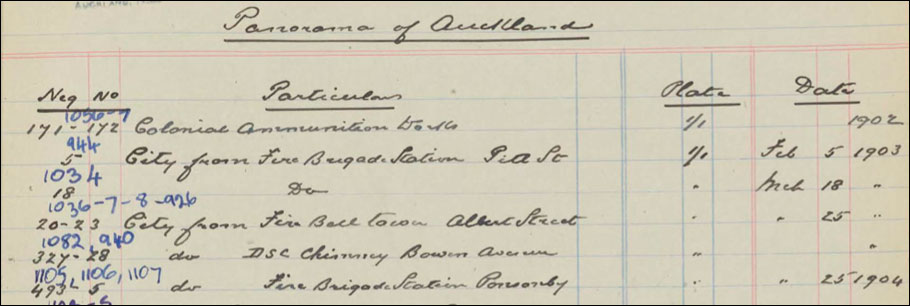 Panorama of Auckland
Neg No Particulars Plate Date
1056-7
171-172 Colonial Ammunition Works 1/1 1902
944
5 City from Fire Brigade Station Pitt St 1/1 Feb 5 1903
1034
18 Do " Mch 18 "
1036-7-8-926
20-23 City from Fire Bell tower Albert Street " " 25 "
1082, 940
327-28 do DSC Chimney Bowen Avenue " "
1105, 1106, 1107
493-5 do Fire Brigade Station Ponsonby " " 25 1904